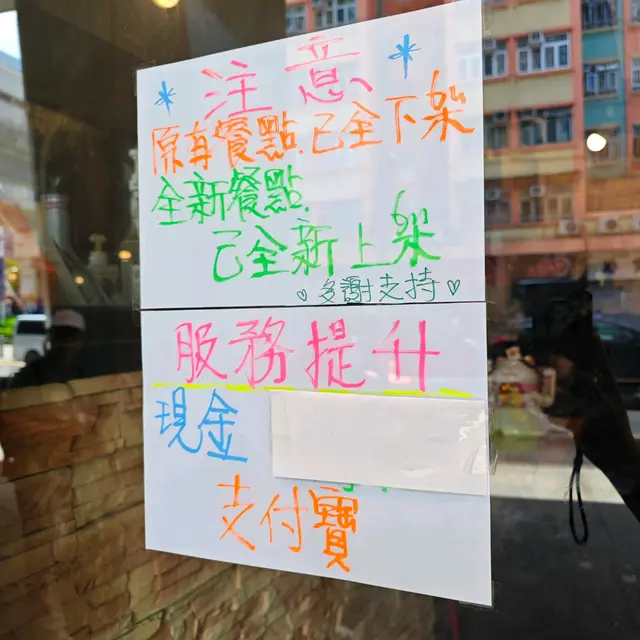 注意
原有餐點.已全下架
全新餐點
已全新上架
多謝支持
服務提升
現金
支付寶